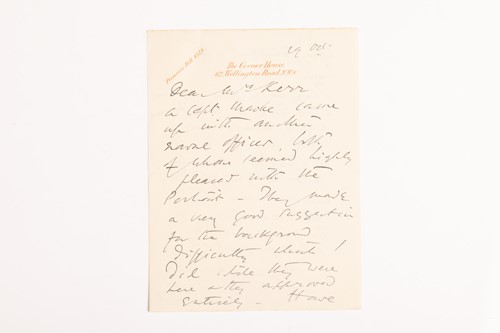 29 Oct.
Primrose Hill 4528
The Corner House
62, Wellington Road. N.W.8
Dear Mrs Kerr
a Capt. came
up with another
naval officer, both
of whom seemed highly
pleased with the
Portrait – They made
a very good suggestion
for the background
difficulty which I
Did while they were
here & they approved
entirely – Have